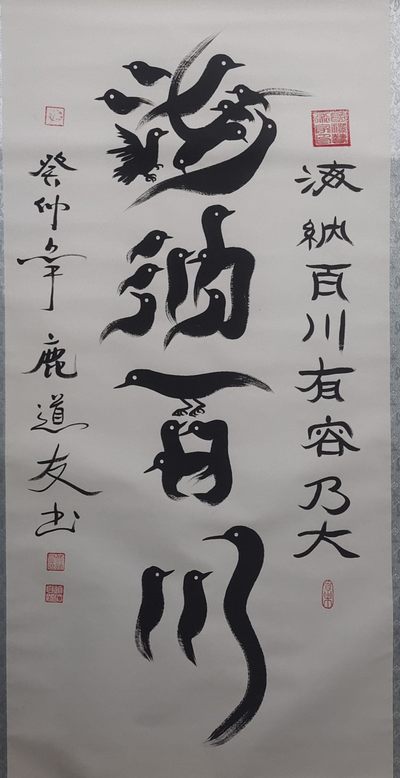 海納百川有容乃大
海納百川
癸卯年 鹿道友书